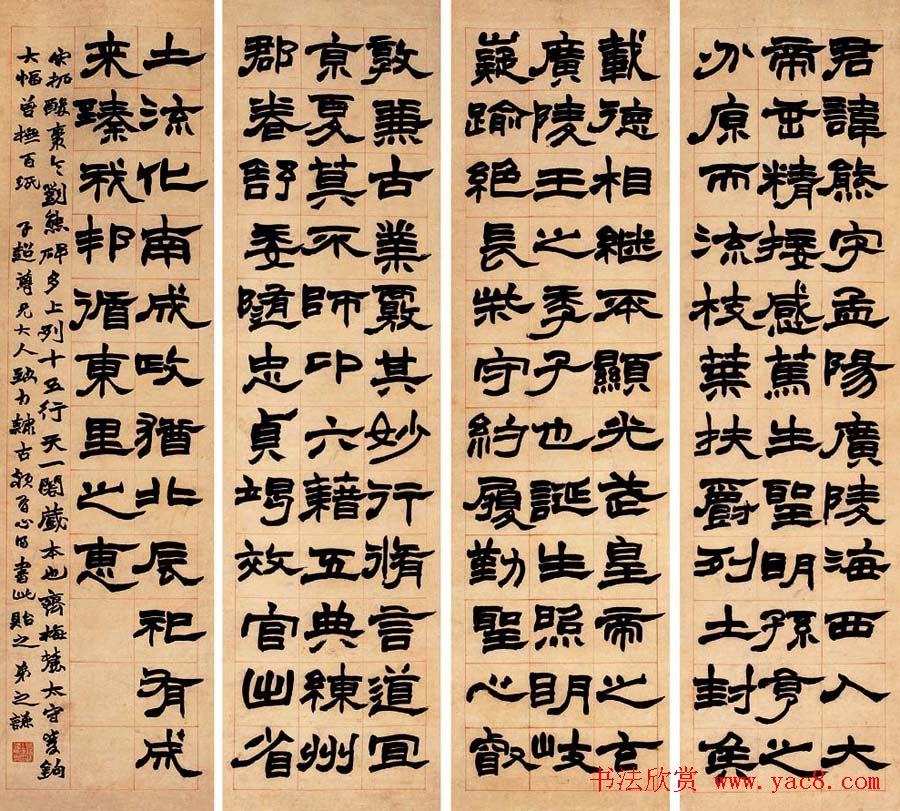 君諱熊字孟陽廣陵海西人大
帝垂精接感篤生聖明孫亨之
分原而流枝葉扶疏列土封矦
載德相繼丕顯光武皇帝之玄
廣陵王之季子也誕生照明岐
嶷踰絕長柴守約履勤聖心叡
敦兼古業覈其妙行脩言道宜
京夏莫不師卬六藉五典練州
郡卷舒委隨忠貞竭效官㞢省
土流化南成政猶北辰祀有成
来臻我邦循東里之惠
宋拓酸棗令劉熊碑多上列十五行天一閣藏本也齊梅麓太守雙鉤
大幅曾橅百紙 子超尊兄大人 力隸古 書此貽之 弟之謙
书法欣赏 www.yac8.com